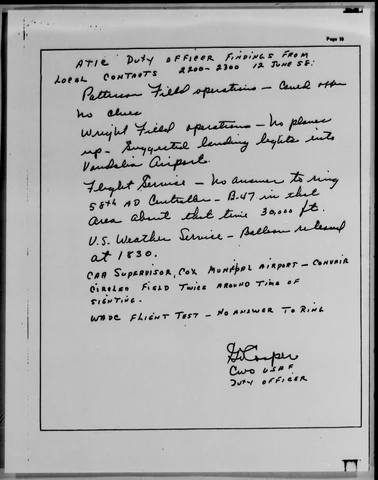 Page 10
ATIC DUTY OFFICER FINDINGS FROM
LOCAL CONTACTS 2200-2300 12 JUNE 58:
Patterson Field operations –
no clues
Wright Field operations – No planes
up – Suggested landing lights into
Vandalia Airport.
Flight Service – No answer to ring
58th AD Controller – B-47 in that
area about that time 30,000 ft.
U.S. Weather Service – Balloon released
at 1830.
CAA SUPERVISOR, COX MUNICIPAL AIRPORT – CONVAIR
CIRCLED FIELD TWICE AROUND TIME OF
SIGHTING.
WADC FLIGHT TEST – NO ANSWER TO RING
Cooper
CWO USAF
DUTY OFFICER